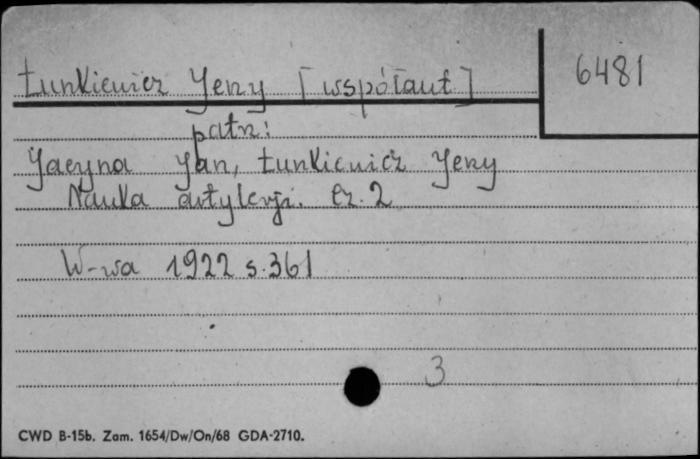 Łunkiewicz Jerzy [współaut]
6481
patrz:
Jacyna Jan, Łunkiewicz Jerzy
Nauka artylerji. Cz. 2
W-wa 1922 s. 361
3
CWD B-15b. Zam. 1654/Dw/On/68 GDA-2710.